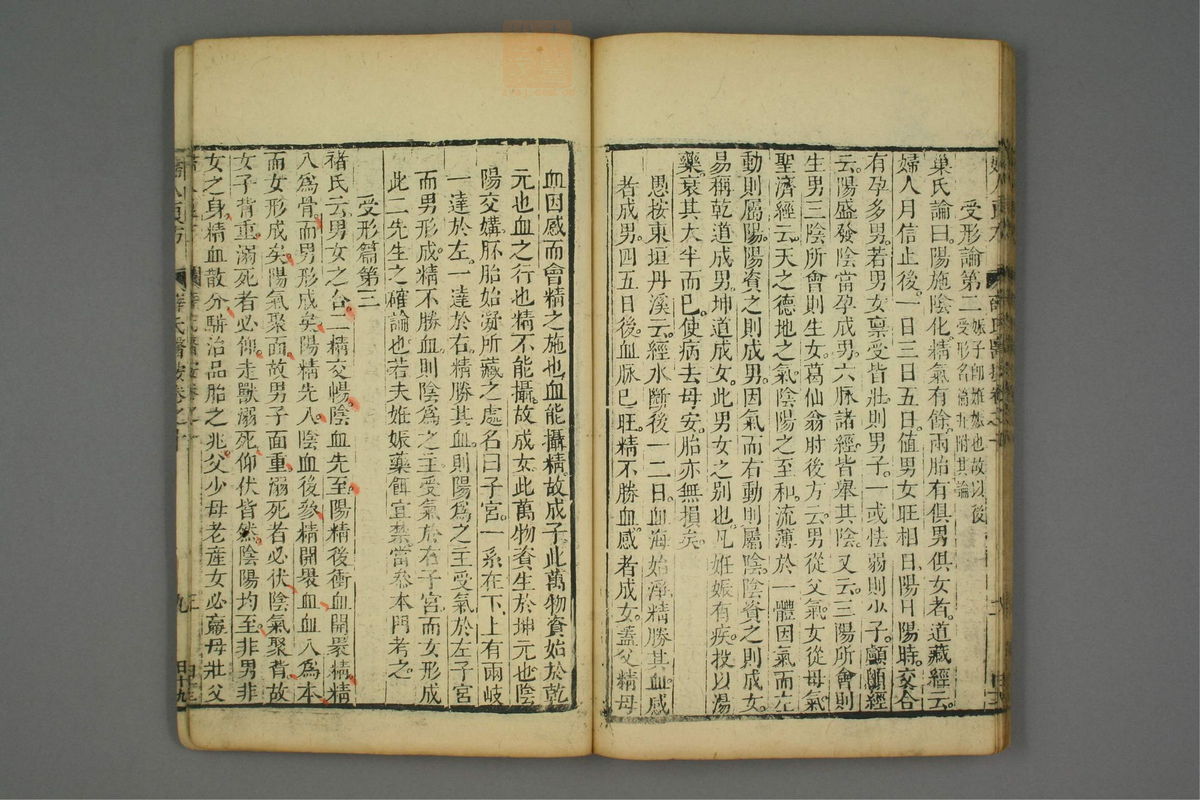 受形論第二 娠子卽姙娠也故以後受形名篇并附其論
巢氏論曰陽施陰化精氣有餘兩胎有俱男俱女者道藏經云
婦人月信止後一日三日五日值男女旺相日陽日陽時交合
有孕多男若男女禀受皆壯則男子一或怯弱則少子顱顖經
云陽盛發陰當孕成男六脉諸經皆舉其陰又云三陽所會則
生男三陰所會則生女葛仙翁肘後方云男從父氣女從母氣
聖濟經云天之德地之氣陰陽之至和流薄於一體因氣而左
動則屬陽陽資之則成男因氣而右動則屬陰陰資之則成女
易稱乾道成男坤道成女此男女之別也凡姙娠有疾投以湯
藥衰其大半而已使病去母安胎亦無損矣
愚按東垣丹溪云經水斷後一二日血海始淨精勝其血感
者成男四五日後血脉已旺精不勝血感者成女蓋父精母
血因感而會精之施也血能攝精故成子此萬物資始於乾
元也血之行也精不能攝故成女此萬物資生於坤元也陰
陽交媾胚胎始凝所藏之處名曰子宮一系在下上有兩岐
一達於左一達於右精勝其血則陽爲之主受氣於左子宮
而男形成精不勝血則陰爲之主受氣於右子宮而女形成
此二先生之確論也若夫姙娠藥餌宜禁當叅本門考之
受形篇第三
褚氏云男女之合二精交暢陰血先至陽精後衝血開裹精精
入爲骨而男形成矣陽精先入陰血後叅精開裹血血入爲本
而女形成矣陽氣聚面故男子面重溺死者必伏陰氣聚背故
女子背重溺死者必仰走獸溺死仰伏皆然陰陽均至非男非
女之身精血散分駢胎品胎之兆父少母老産女必羸母壯父